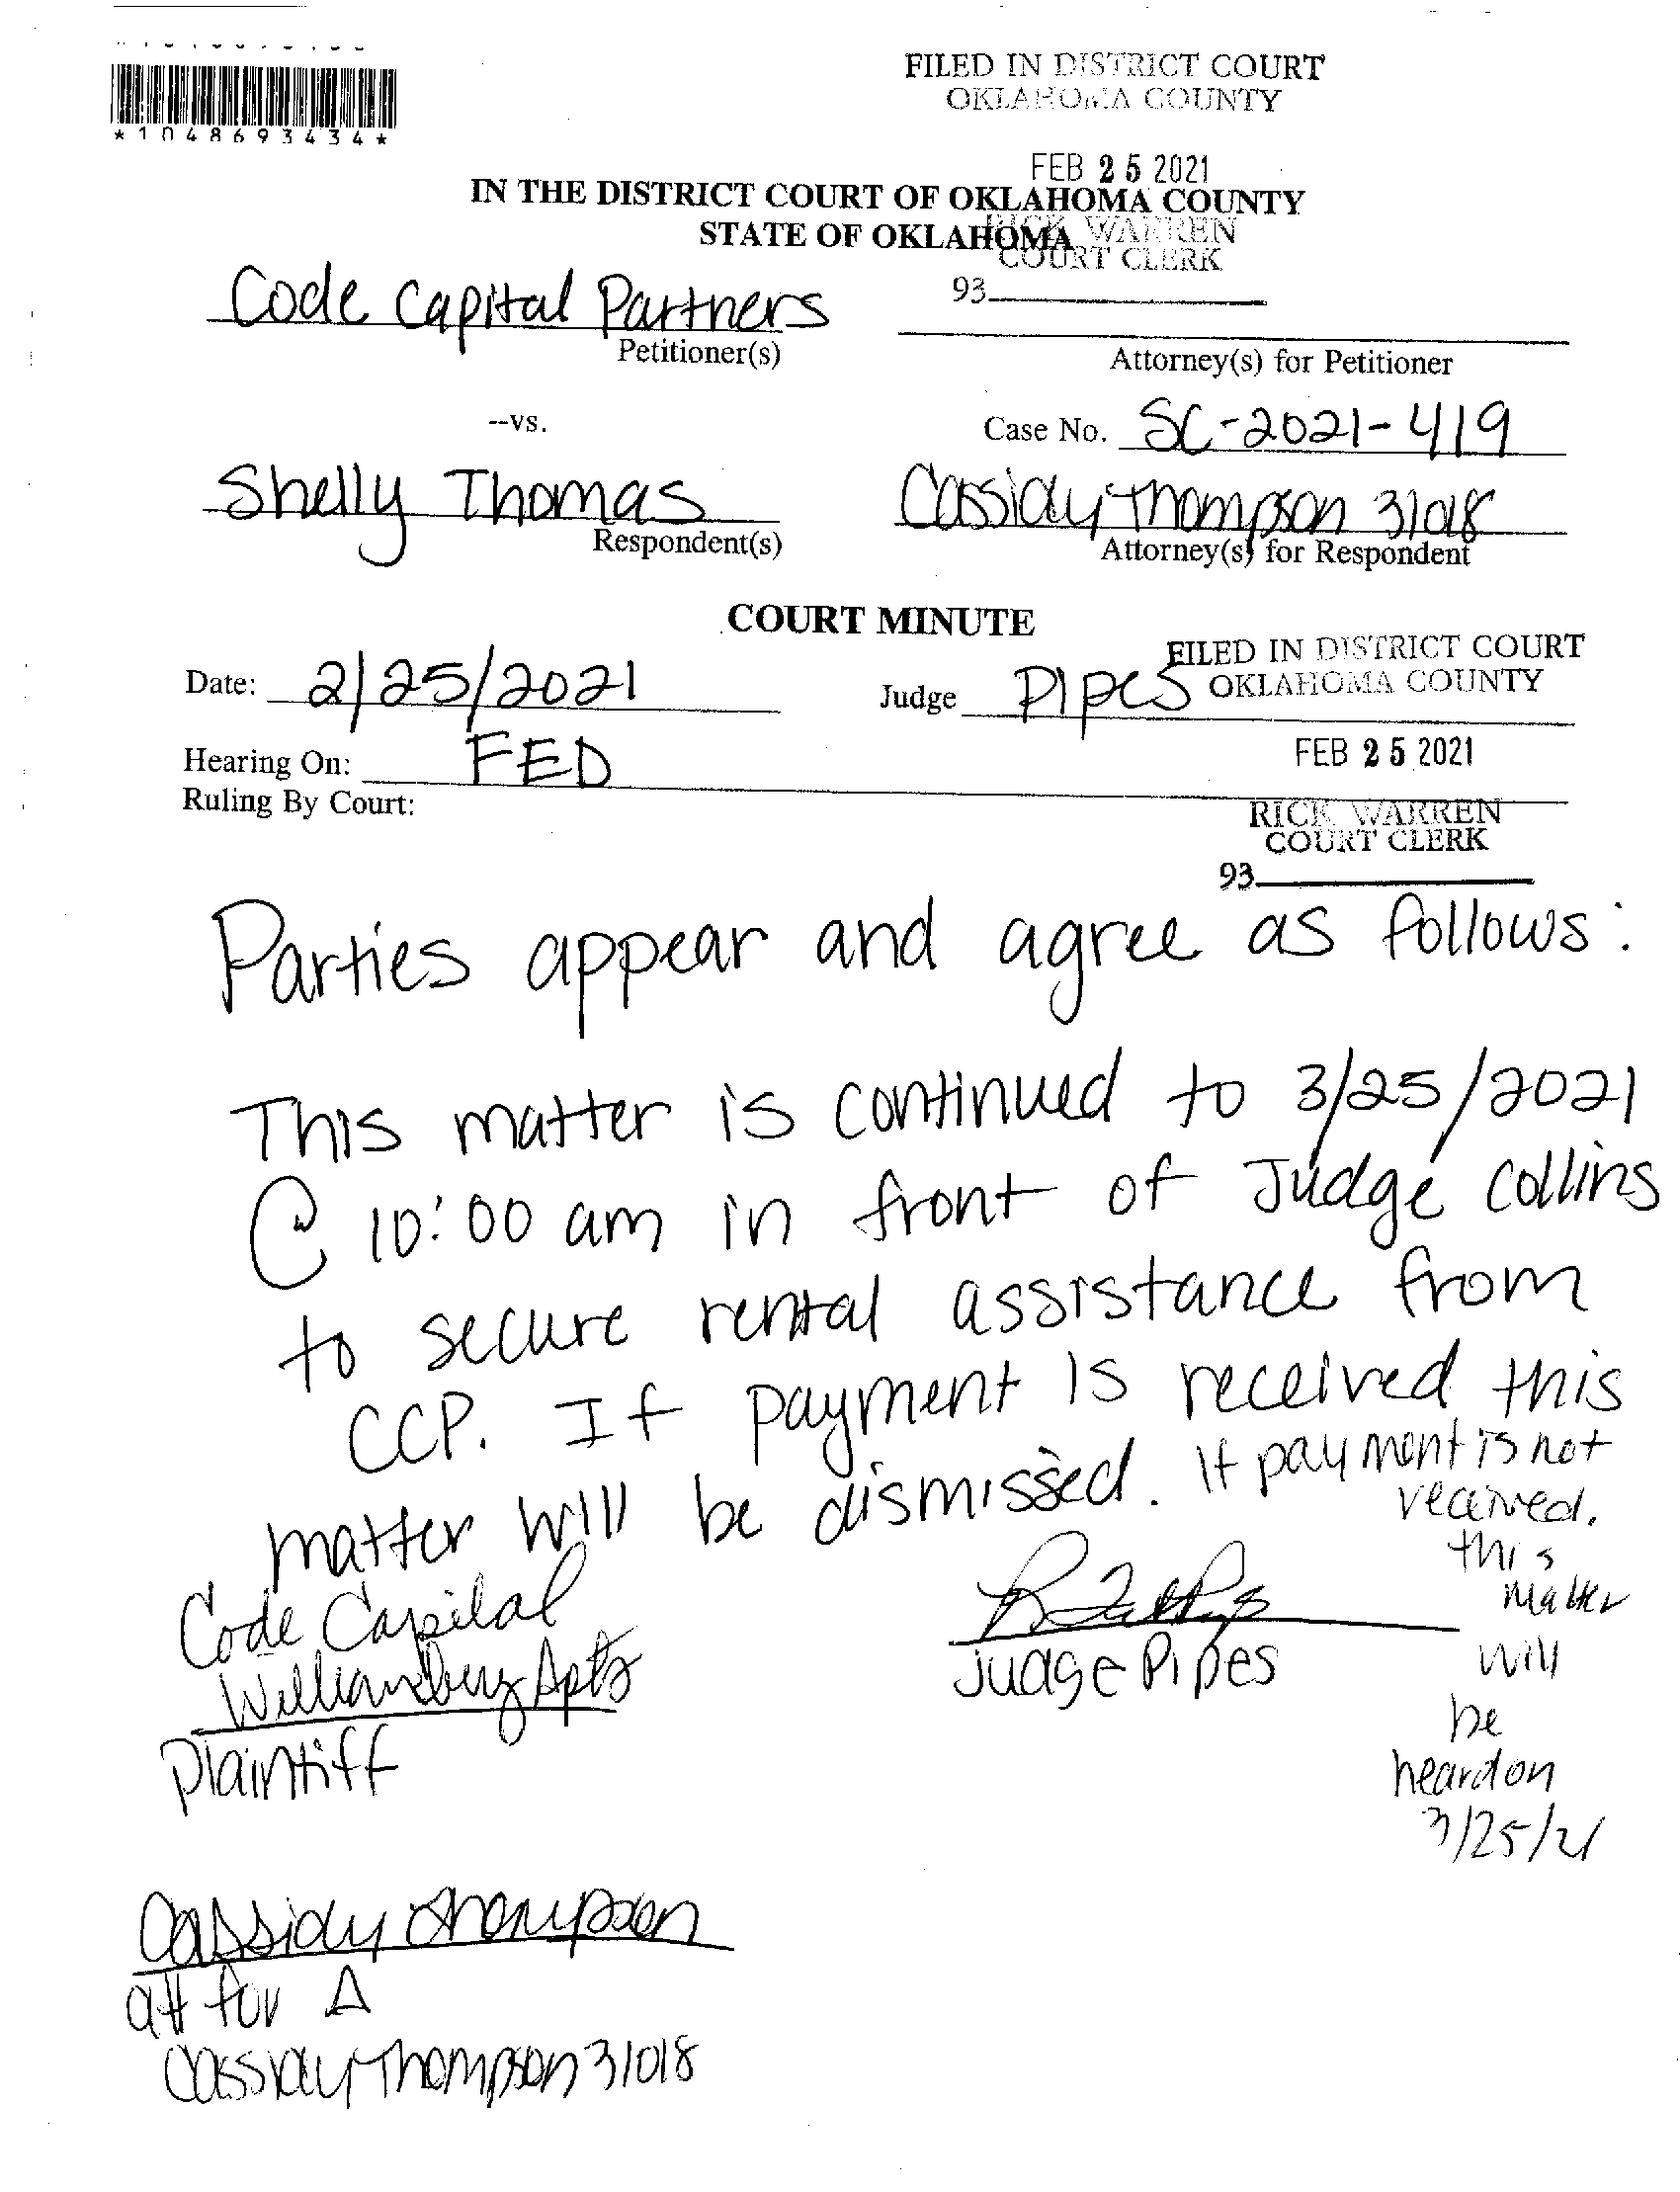 *1048693434*
FILED IN DISTRICT COURT
OKLAHOMA COUNTY
FEB 25 2021
IN THE DISTRICT COURT OF OKLAHOMA COUNTY
STATE OF OKLAHOMA
RICK WARREN
COURT CLERK
93
Code Capital Partners
Petitioner(s)
Attorney(s) for Petitioner
--vs.
Case No. SC-2021-419
Shelly Thomas
Respondent(s)
Cassidy Thompson 31018
Attorney(s) for Respondent
COURT MINUTE
Date: 2/25/2021
Judge Pipes
FILED IN DISTRICT COURT
OKLAHOMA COUNTY
Hearing On: FED
FEB 25 2021
Ruling By Court:
RICK WARREN
COURT CLERK
93
Parties appear and agree as follows:
This matter is continued to 3/25/2021
@ 10:00 am in front of Judge Collins
to secure rental assistance from
CCP. If payment is received this
matter will be dismissed. If payment is not
received.
this
matter
will
be
heard on
3/25/21
Code Capital
Williamsburg Apts
Plaintiff
Judge Pipes
Cassidy Thompson
att for Δ
Cassidy Thompson 31018